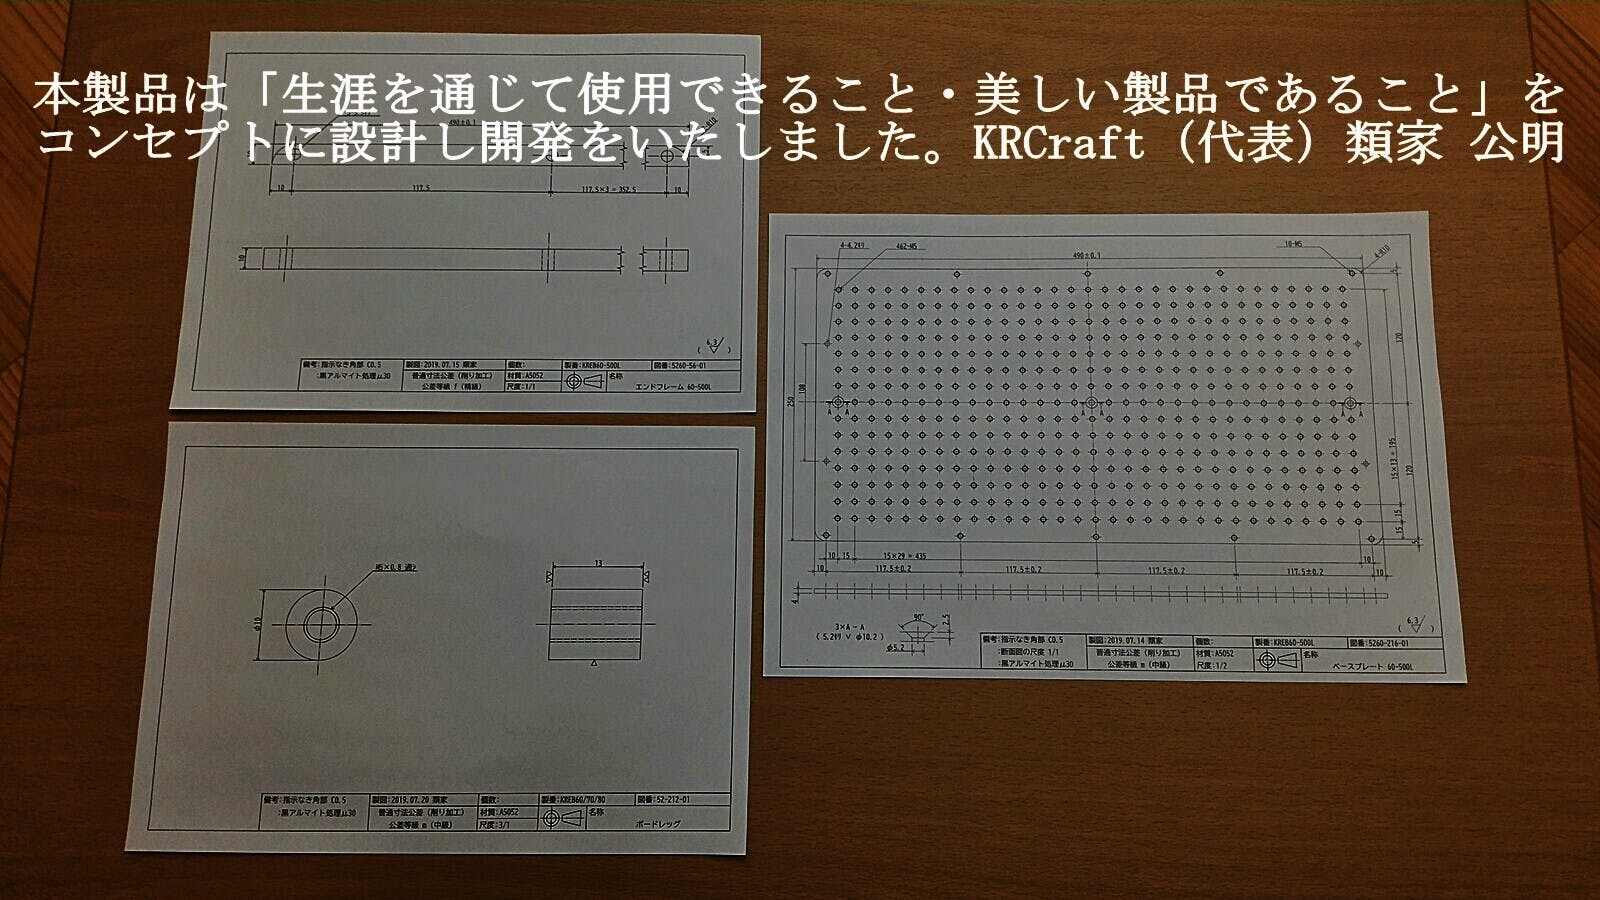 本製品は「生涯を通じて使用できること・美しい製品であること」を
コンセプトに設計し開発をいたしました。KRCraft（代表）類家 公明
490±0.1
10
117.5
117.5×3 = 352.5
10
10
6.3
備考:指示なき角部 C0.5
:黒アルマイト処理μ30
製図:2019.07.15 類家
普通寸法公差（削り加工）
公差等級 f（精級）
個数:
材質:A5052
尺度:1/1
製番:KREB60-500L
図番:5260-56-01
名称
エンドフレーム 60-500L
M5×0.8 通シ
φ10
13
備考:指示なき角部 C0.5
:黒アルマイト処理μ30
製図:2019.07.20 類家
普通寸法公差（削り加工）
公差等級 m（中級）
個数:
材質:A5052
尺度:3/1
製番:KREB60/70/80
図番:52-212-01
名称
ボードレッグ
4-4.2キリ
462-M5
10-M5
4-R10
490±0.1
5
120
108
250
A A
A A
A A
15×13 = 195
120
15
15
5
10
15
15×29 = 435
10
10
117.5±0.2
117.5±0.2
117.5±0.2
117.5±0.2
10
4
3×A－A
( 5.2キリ ∨ φ10.2 )
90°
2.5
φ5.2
6.3
備考:指示なき角部 C0.5
:断面図の尺度 1/1
:黒アルマイト処理μ30
製図:2019.07.14 類家
普通寸法公差（削り加工）
公差等級 m（中級）
個数:
材質:A5052
尺度:1/2
製番:KREB60-500L
図番:5260-216-01
名称
ベースプレート 60-500L